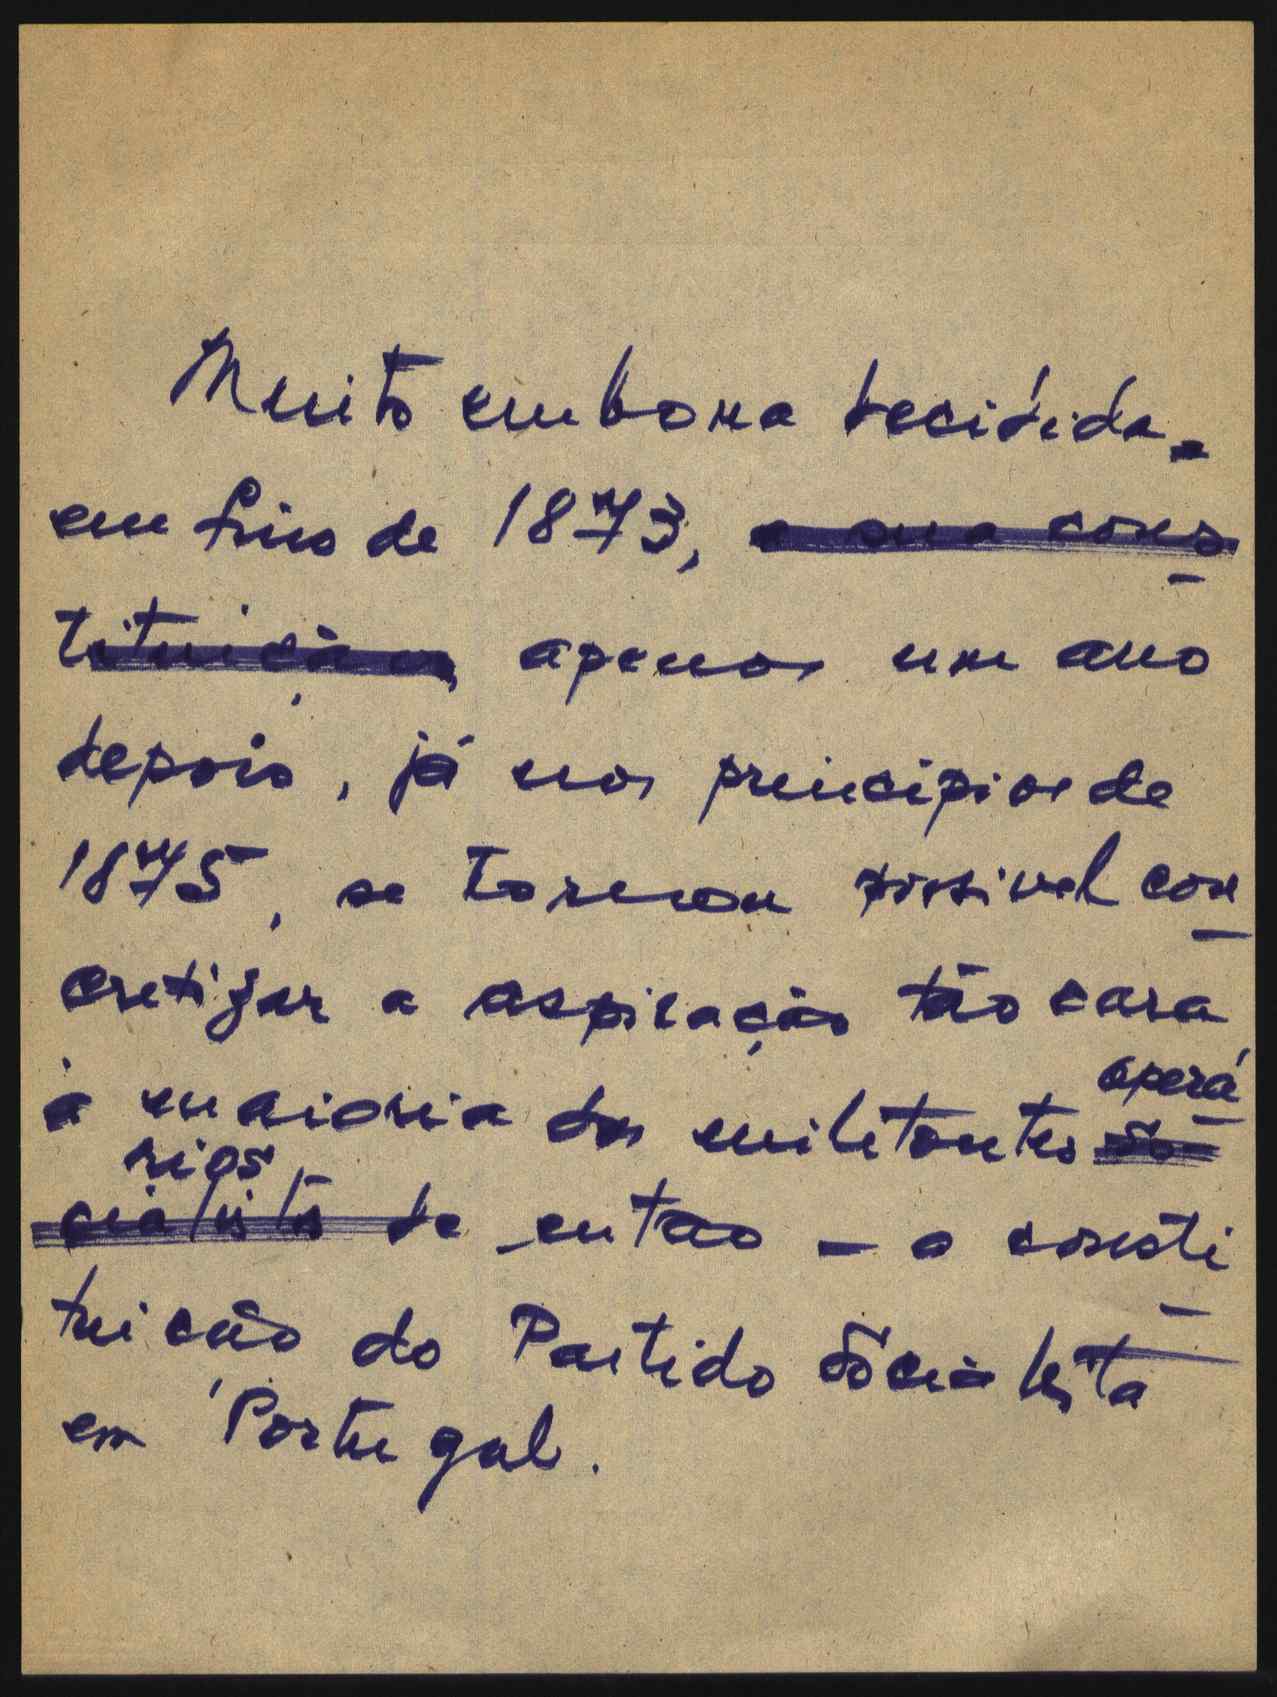 Muito embora decidida
em fins de 1873, a sua cons-
tituição, apenas um ano
depois, já nos princípios de
1875, se tornou possivel con-
cretizar a aspiração tão cara
operá-
à maioria dos militantes so
rios
cialista de então - a consti-
tuição do Partido Socialista
em Portugal.